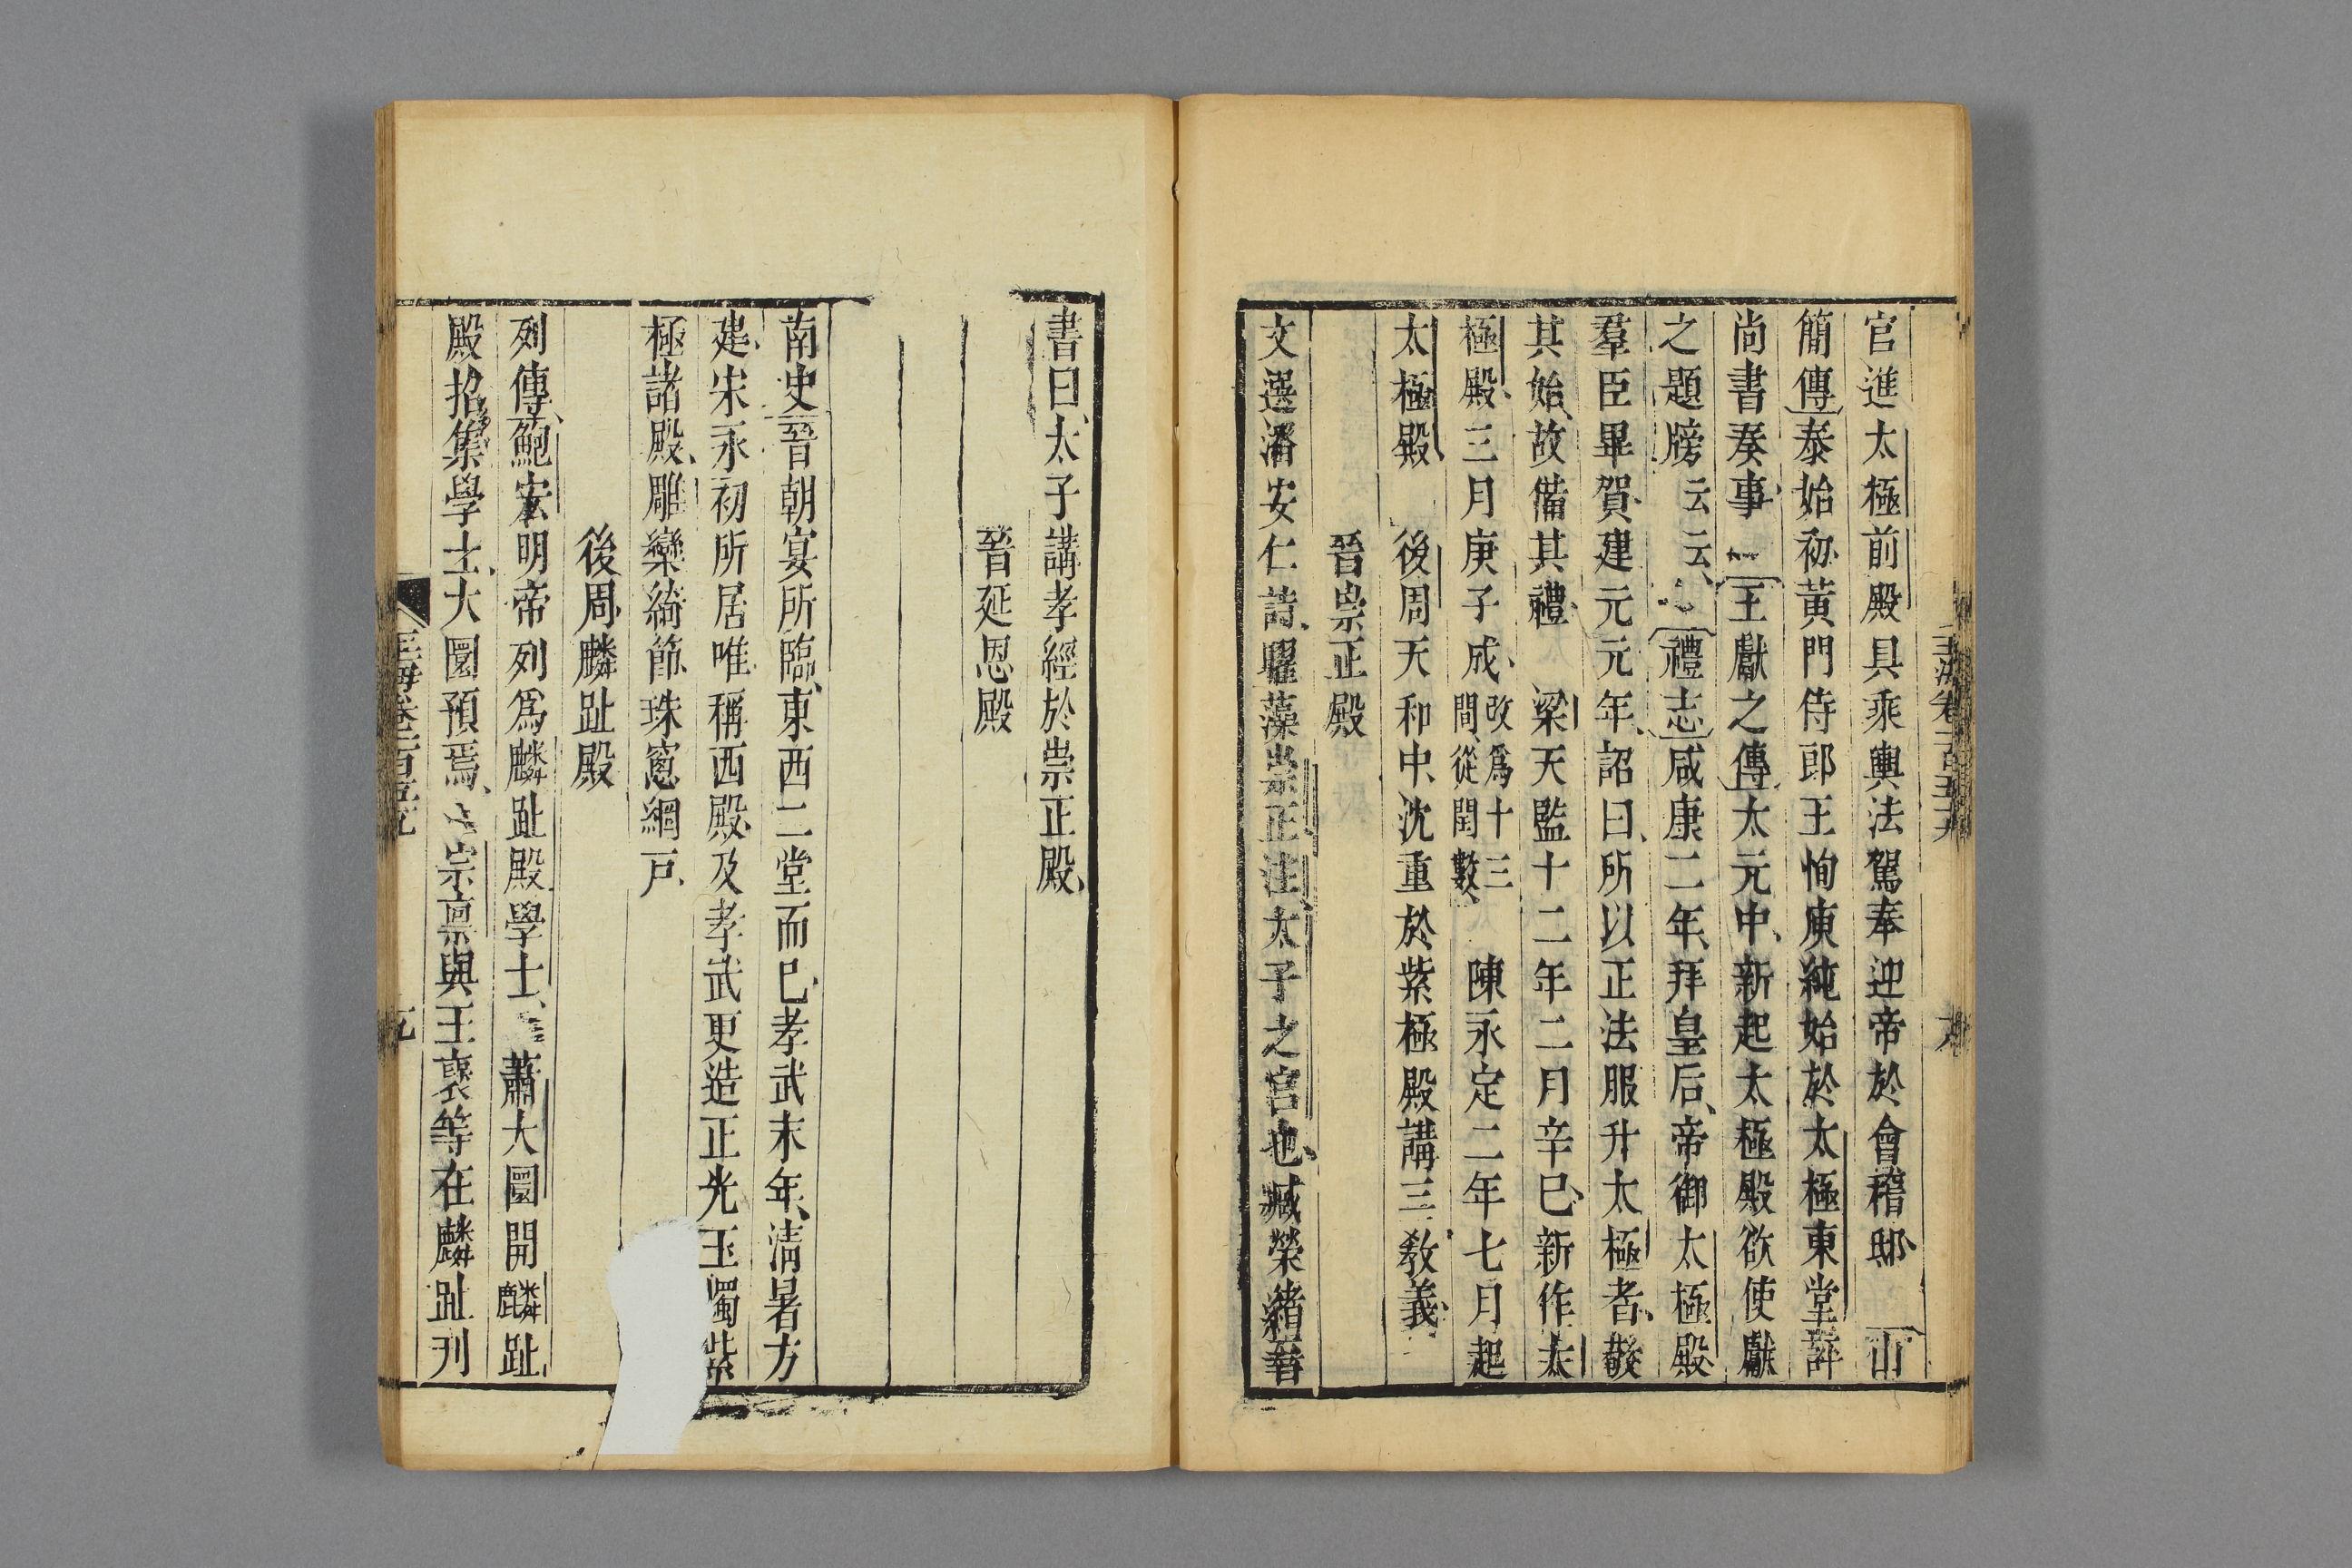 官進太極前殿具乘輿法駕奉迎帝於會稽邸 山
簡傳泰始初黃門侍郎王恂庾純始於太極東堂評
尚書奏事 王獻之傳太元中新起太極殿欲使獻
之題牓云云 禮志咸康二年拜皇后帝御太極殿
羣臣畢賀建元元年詔曰所以正法服升太極者敬
其始故備其禮 梁天監十二年二月辛巳新作太
極殿三月庚子成改爲十三間從閏數 陳永定二年七月起
太極殿 後周天和中沈重於紫極殿講三教義
晉崇正殿
文選潘安仁詩曜藻崇正注太子之宮也臧榮緒晉
書曰太子講孝經於崇正殿
晉延恩殿
南史晉朝宴所臨東西二堂而已孝武末年清暑方
建宋永初所居唯稱西殿及孝武更造正光玉燭紫
極諸殿雕欒綺節珠窻網戸
後周麟趾殿
列傳鮑宏明帝列爲麟趾殿學士 蕭大圜開麟趾
殿招集學士大圜預焉 宗懍與王襃等在麟趾刋
玉海卷一百五九